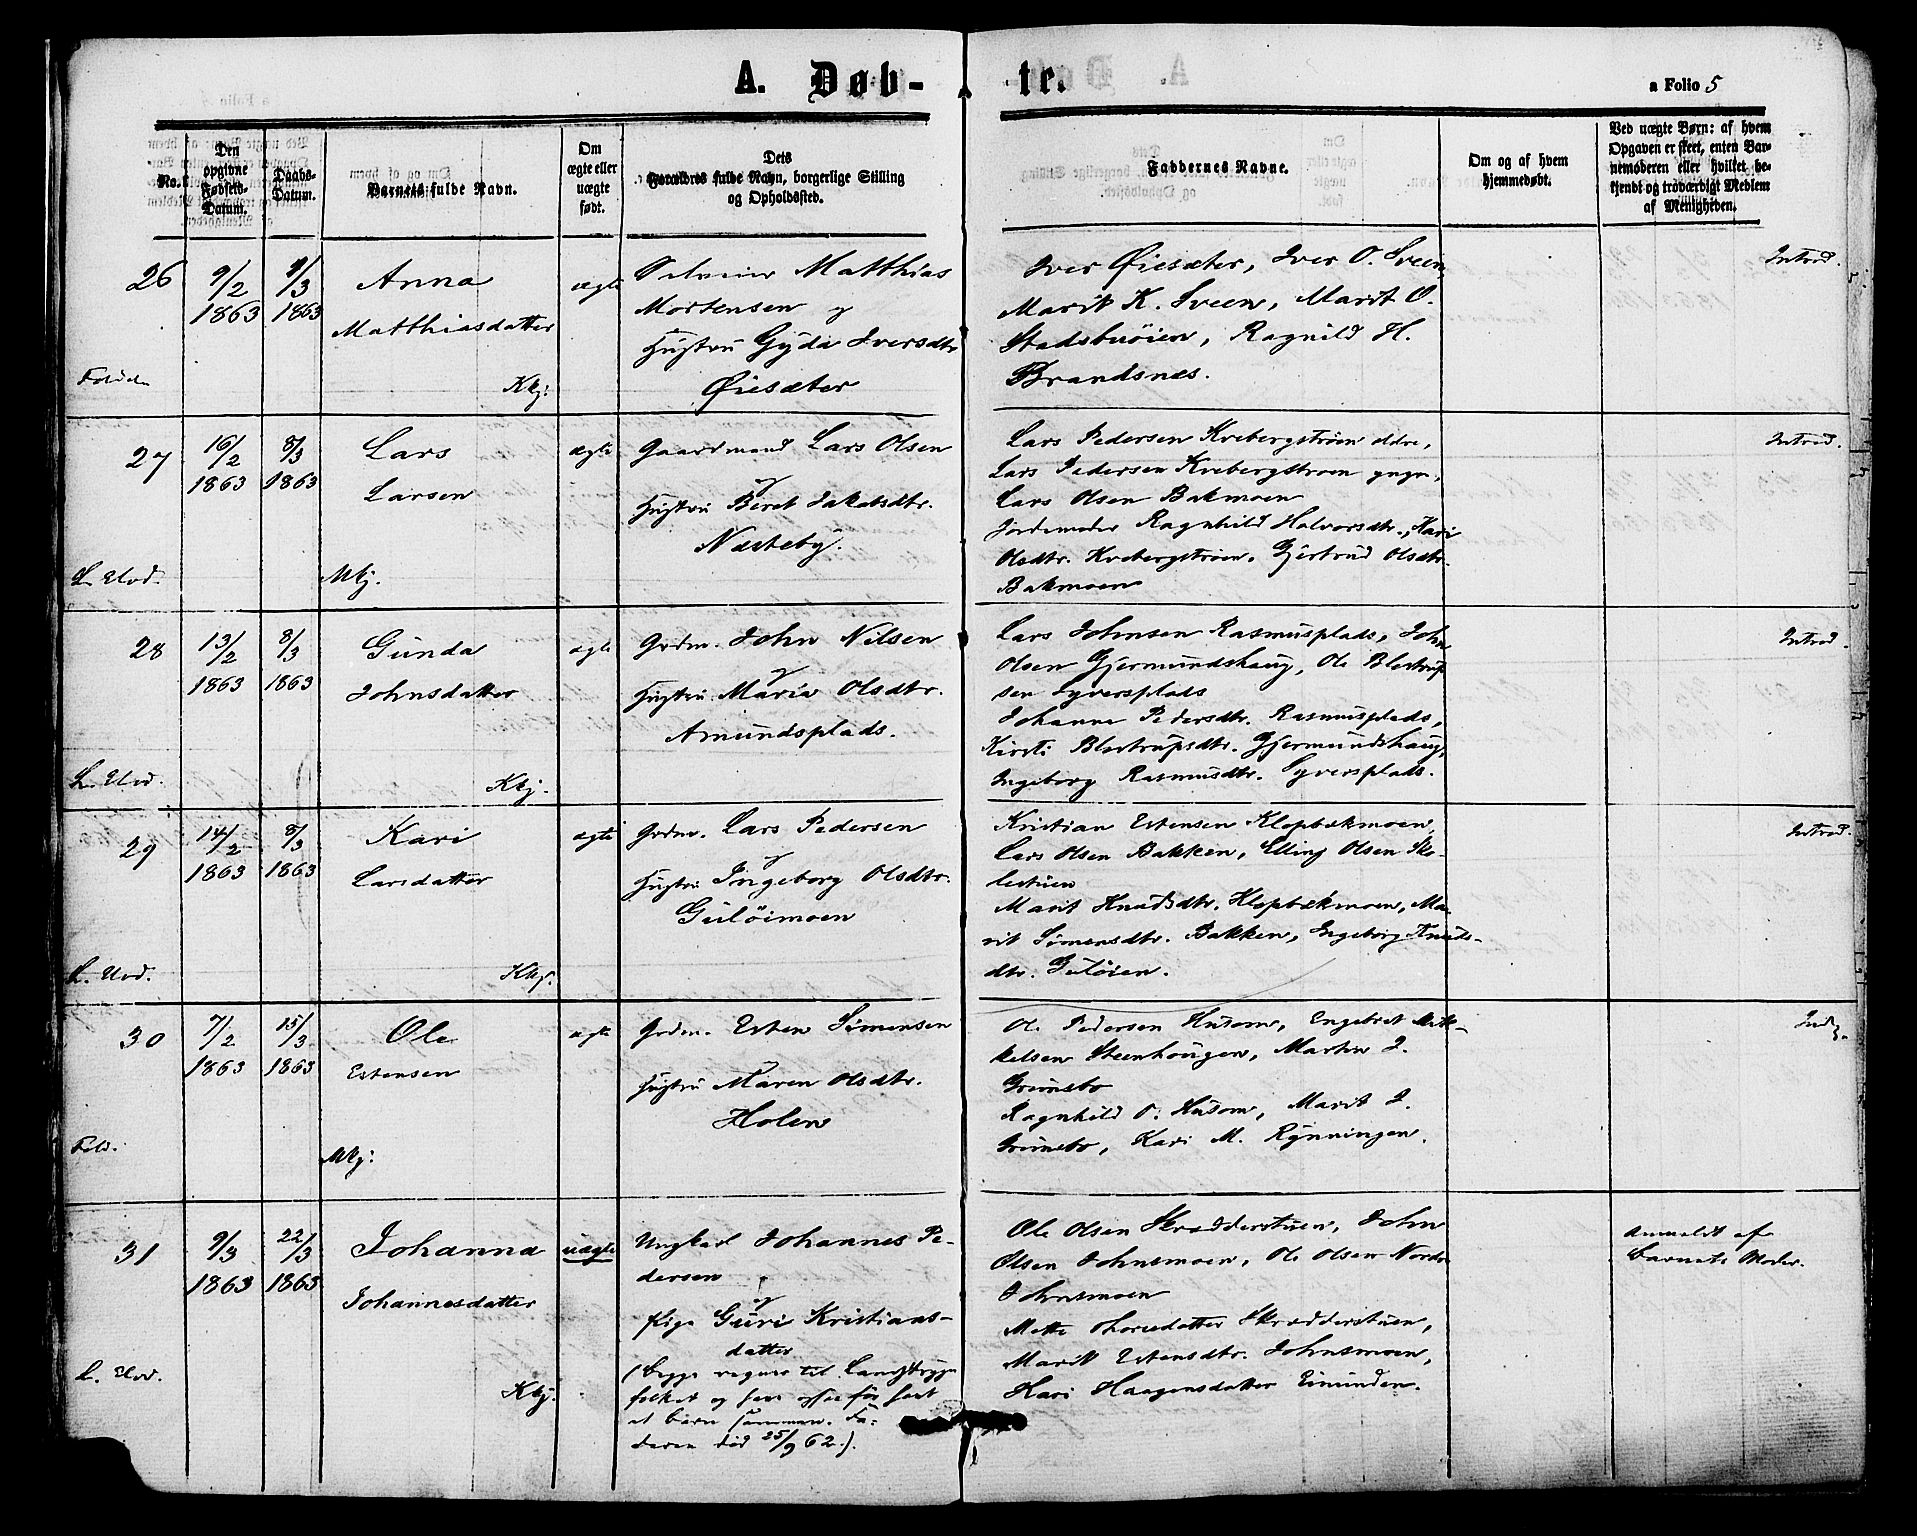 A. Døb-
te.
a Folio 5
No.
Den opgivne Fødsels-Datum.
Daabs-Datum.
Barnets fulde Navn.
Om ægte eller uægte født.
Dets Forældres fulde Navn, borgerlige Stilling og Opholdssted.
Faddernes Navne.
Om og af hvem hjemmedøbt.
Ved uægte Børn: af hvem Opgaven er skeet, enten Barnemoderen eller hvilket bekjendt og troværdigt Medlem af Menigheden.
26
9/2 1863
8/3 1863
Anna
Matthiasdatter
Kkj.
ægte
Matthias
Mortensen og
Hustru Gyda Iversdtr
Øiesæter
Iver Øiesæter, Iver O. Sveen,
Marit K. Sveen, Marit O.
Stadsbuøien, Ragnild H.
Brandsnes.
Introd.
27
16/2 1863
8/3 1863
Lars
Larsen
Mkj.
L. Elvd.
ægte
Gaardmand Lars Olsen
og
Hustru Beret Jakobsdtr.
Næsteby.
Lars Pedersen Krebergstrøen eldre,
Lars Pedersen Kvebergstroen yngr.,
Lars Olsen Bakmoen
Jordemoder Ragnhild Halvorsdtr., Kari
Olsdtr. Kvebergstrøen, Gjertrud Olsdtr.
Bakmoen
Introd.
28
13/2 1863
8/3 1863
Gunda
Johnsdatter
Kkj.
L. Elvd.
ægte
Grdm. John Nilsen
og
Hustru Maria Olsdtr.
Amundsplads.
Lars Johnsen Rasmusplads, John
Olsen Gjermundshaug, Ole Blestrup
sen Syversplads
Johanne Pedersdtr. Rasmusplads,
Kirsti Blestrupsdtr. Gjermundshaug,
Ingeborg Rasmusdtr. Syversplads.
Introd.
29
14/2 1863
8/3 1863
Kari
Larsdatter
Kkj.
L. Elvd.
ægte
Grdm. Lars Pedersen
og
Hustru Ingeborg Olsdtr.
Guløimoen
Kristian Estensen Klopbækmoen,
Lars Olsen Bakken, Elling Olsen Sko-
lestuen
Marit Knudsdtr. Klopbækmoen, Ma-
rit Simensdtr. Bakken, Engeborg Knuds-
dtr. Guløien.
Introd.
30
7/2 1863
15/3 1863
Ole
Estensen
Mkj.
Fold.
ægte
Grdm. Esten Simensen
og
Hustru Maren Olsdtr.
Holen
Ole Pedersen Husom, Engebret Mik-
kelsen Steenhaugen, Martin J.
Grimsbo
Ragnhild O. Husom, Marit J.
Grimsbo, Kari M. Rynningen.
31
9/3 1863
22/3 1863
Johanna
Johannesdatter
Kkj.
L. Elvd.
uægte
Ungkarl Johannes Pe-
dersen
og
Pige Guri Kristians-
datter
(begge regnes til
folket og have ogsaa før havt
et barn sammen. Fa-
deren død 25/9 62.).
Ole Olsen Skrædderstuen, John
Olsen Johnsmoen, Ole Olsen Nordre
Johnsmoen
Mette Thoresdatter Skrædderstuen,
Marit Estensdtr. Johnsmoen,
Kari Haagensdatter Eimunden.
Anmeldt af
Barnets Moder.